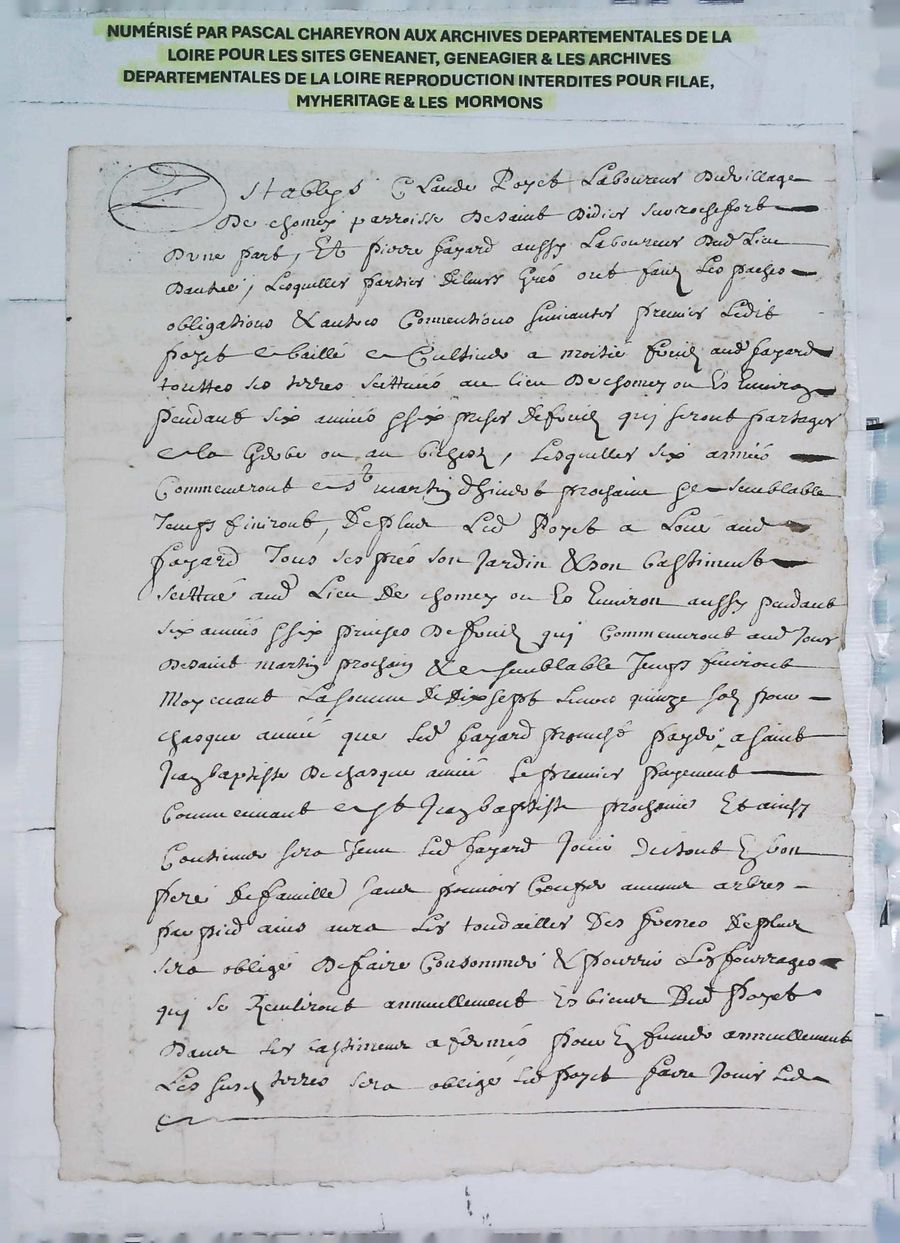 NUMÉRISÉ PAR PASCAL CHAREYRON AUX ARCHIVES DEPARTEMENTALES DE LA
LOIRE POUR LES SITES GENEANET, GENEAGIER & LES ARCHIVES
DEPARTEMENTALES DE LA LOIRE REPRODUCTION INTERDITES POUR FILAE,
MYHERITAGE & LES MORMONS
Establys Claude Poyet Laboureur du village
De chomey parroisse de saint Didier sur rochefort
Dune part, Et pierre fayard aussy Laboureur dud Lieu
Dautre, Lesquelles parties de leurs grés ont faict les paches
obligations & autres Conventions suivantes premier Ledit
poyet a baillé a Cultiver a moitié fruict aud fayard
touttes ses terres scittuées au lieu de chomey ou Es Environ
pendant six années & six prises de fruict quy seront partagés
a la Gerbe ou au bichest, Lesquelles six années
Commenceront a st martin dhivert prochaine & a semblable
Temps finiront, De plus Led Poyet a Loué aud
fayard Tous ses prés son Jardin & son bastiment
scittué aud Lieu De chomey ou Es Environ aussy pendant
six années & six prinses De fruict qui Commenceront aud Jour
De saint martin prochain & a semblable Temps finiront
Moyenant La somme de dix sept Livres quinze sols pour
chasque année que Led fayard promet payer a saint
Jean baptiste De chasque année Le premier payement
Commencant a st Jean baptiste prochaine Et ainsy
Continuer sera Tenu Led fayard Jouir du tout En bon
pere de famille sans pouvoir Couper aucuns arbres
par pied ains aura Les tondailles Des fresnes De plus
sera obligé De faire Consommer & pourrir Les fourrages
quy se Recueilliront annuellement Es biens Dud Poyet
Dans Les bastiments afermés pour En fumer annuellement
Les susd terres sera obligé Led poyet faire Jouir Led